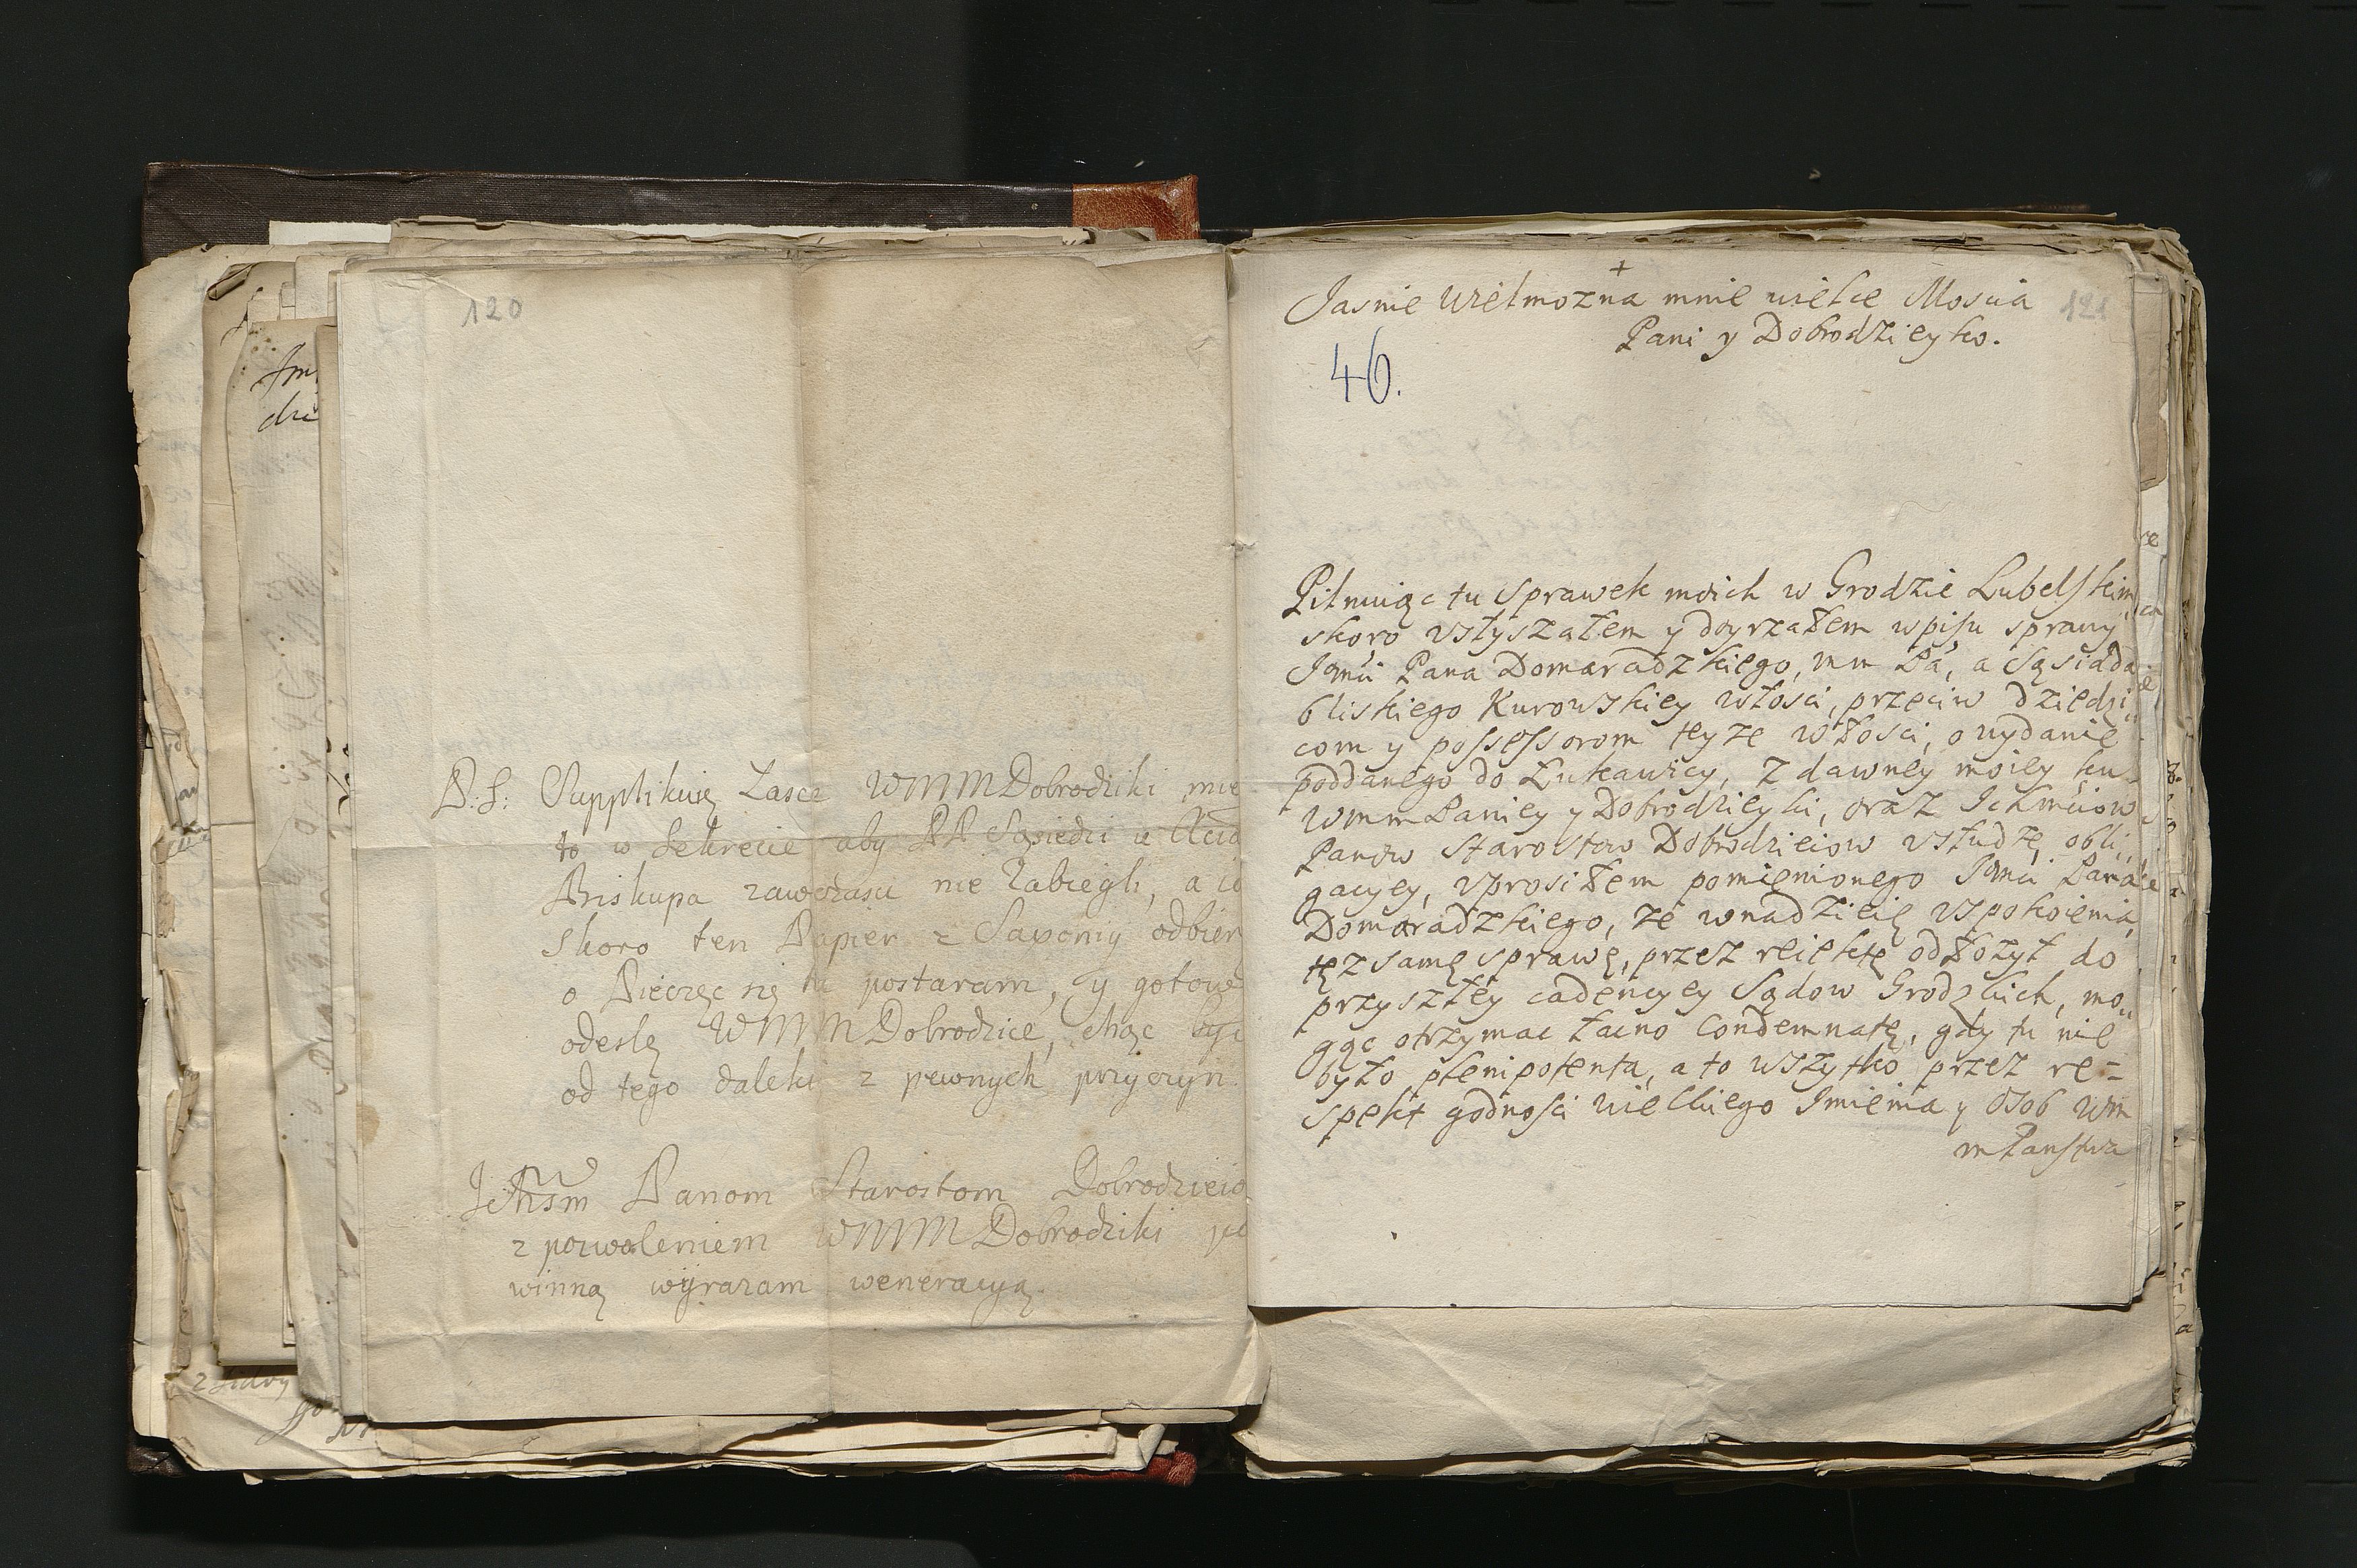 120
P:S: Supplikuię Zascz WMMDobrodziki mie
to w Sekrecie aby PP Sąsiedzi u Xcia
Biskupa zawczasu nie Zabiegli, a ia
skoro ten Papier z Saxoniy odbier
o Pieczęc się tu postaram, y gotow
odeslę WMMDobrodzice, chąc bydz
od tego daleki z pewnych przyczyn.
Panom Starostom Dobrodzieio
z pozwoleniem WMMDobrodziki po
winną wyrazam weneracyą.
+
Jasnie Wielmozna mnie wielce Moscia
Pani y Dobrodzieyko.
121
46.
Pilnuiąc tu Sprawek moich w Grodzie Lubelskim
skoro vslyszałem y doyrzałem wpisu sprawy
Jmći Pana Domaradzkiego, mm Pa, a Sąsiada
bliskiego Kurowskiey włosci, przeciw dziedzi„
com y possessorom teyze włosci, o wydanie
poddanego do Łukawicy, z dawney moiey ku
Wmm Paniey y Dobrodzieyki, oraz Ichmciow
Panow Starostow Dobrodzieiow vsłudze, obli„
gacyey, vprosiłem pomienionego Jmci Pana
Domaradzkiego, ze wnadzieię vspokoienia,
tęz samę sprawę, przez reiektę odłozył do
przyszłey cadencyey Sądow Grodzkich, mo„
gąc otrzymac łacno Condemnatę, gdy tu nie
było plenipotenta, a to wszytko przez re=
spekt godnosci wielkiego Imienia y Osob Wm
m Panstwa